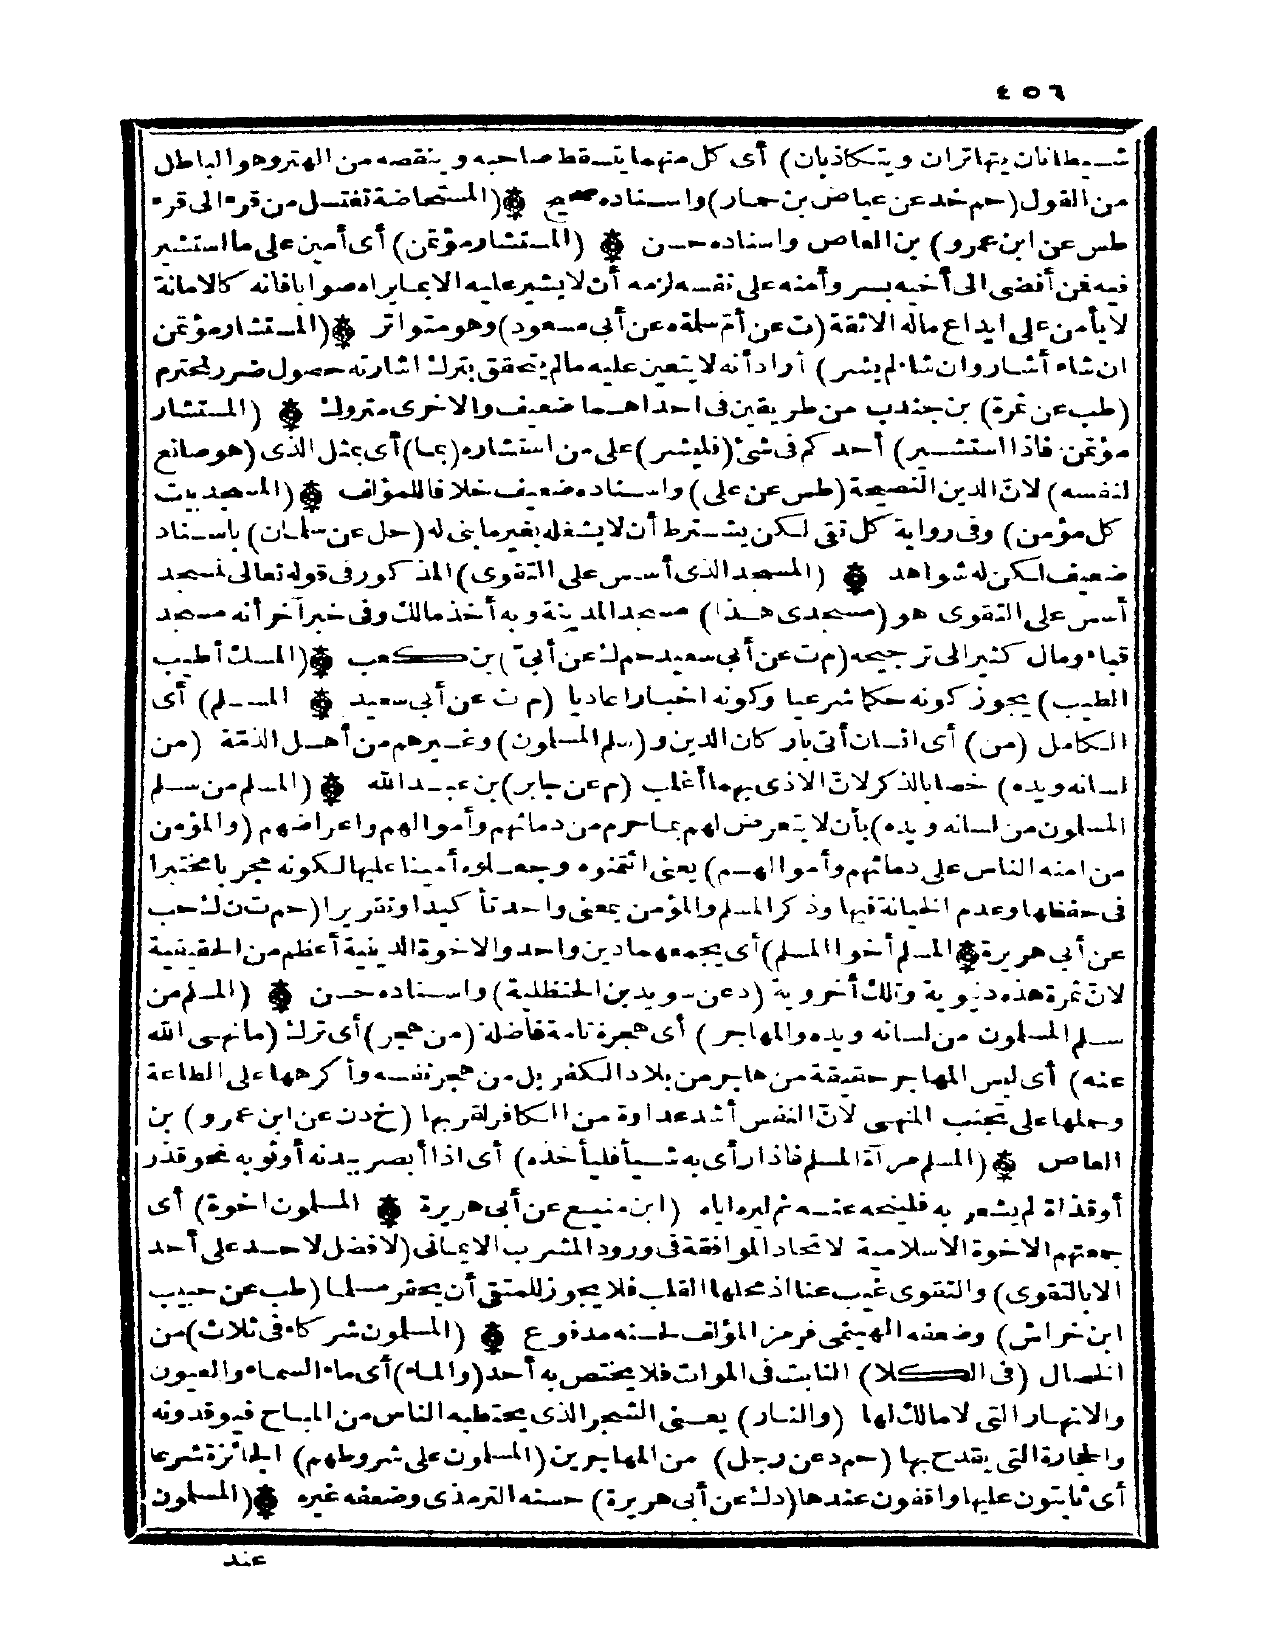 ٤٥٦
شيطانان يتهاتران ويتكاذبان) أى كل منهما يتسقط صاحبه و ينقصه من الهتر وهو الباطل
من القول (حم خد عن عياض بن حمار) واسناده صحيح ۞ (المستحاضة تغتسل من قرء الى قرء
طس عن ابن عمرو) بن العاص واسناده حسن ۞ (المستشار مؤتمن) أى أمين على ما استشير
فيه فمن أفضى الى أخيه بسر وأمنه على نفسه لزمه أن لا يشير عليه الا بما يراه صوابا فانه كالامانة
لا يأمن على ايداع ماله الا ثقة (ت عن أم سلمة ه عن أبى مسعود) وهو متواتر ۞ (المستشار مؤتمن
ان شاء أشار وان شاء لم يشر) أراد أنه لا يتعين عليه ما لم يتحقق بترك اشارته حصول ضرر لمحترم
(طب عن سمرة) بن جندب من طريقين فى احداهما ضعيف والاخرى متروك ۞ (المستشار
مؤتمن فاذا استشير) أحدكم فى شئ (فليشر) على من استشاره (بما) أى بمثل الذى (هو صانع
لنفسه) لان الدين النصيحة (طس عن على) واسناده ضعيف خلافا للمؤلف ۞ (المسجد بيت
كل مؤمن) وفى رواية كل تقى لكن يشترط أن لا يشغله بغير ما بنى له (حل عن سلمان) باسناد
ضعيف لكن له شواهد ۞ (المسجد الذى أسس على التقوى) المذكور فى قوله تعالى لمسجد
أسس على التقوى هو (مسجدى هذا) مسجد المدينة وبه أخذ مالك وفى خبر آخر أنه مسجد
قباء ومال كثير الى ترجيحه (م ت عن أبى سعيد حم ك عن أبىّ) بن كعب ۞ (المسك أطيب
الطيب) يجوز كونه حكما شرعيا وكونه اخبارا عاديا (م ت عن أبى سعيد ۞ المسلم) أى
الكامل (من) أى انسان أتى باركان الدين و(سلم المسلمون) وغيرهم من أهل الذمة (من
لسانه ويده) خصا بالذكر لان الاذى بهما أغلب (م عن جابر) بن عبد الله ۞ (المسلم من سلم
المسلمون من لسانه ويده) بأن لا يتعرض لهم بما حرم من دمائهم وأموالهم واعراضهم (والمؤمن
من امنه الناس على دمائهم وأموالهم) يعنى ائتمنوه وجعلوه أمينا عليها لكونه مجربا مختبرا
فى حفظها وعدم الخيانة فيها وذكر المسلم والمؤمن بمعنى واحد تأكيدا وتقريرا (حم ت ن ك حب
عن أبى هريرة ۞ المسلم أخو المسلم) أى يجمعهما دين واحد والاخوة الدينية أعظم من الحقيقية
لان ثمرة هذه دنيوية وتلك أخروية (د عن سويد بن الحنظلية) واسناده حسن ۞ (المسلم من
سلم المسلمون من لسانه ويده والمهاجر) أى هجرة تامة فاضلة (من هجر) أى ترك (ما نهى الله
عنه) أى ليس المهاجر حقيقة من هاجر من بلاد الكفر بل من هجر نفسه وأكرهها على الطاعة
وحملها على تجنب المنهى لان النفس أشد عداوة من الكافر لقربها (خ د ن عن ابن عمرو) بن
العاص ۞ (المسلم مرآة المسلم فاذا رأى به شيأ فليأخذه) أى اذا أبصر ببدنه أو ثوبه نحو قذر
أو قذاة لم يشعر به فلينحه عنه ثم ليره اياه (ابن منيع عن أبى هريرة ۞ المسلمون اخوة) أى
جمعتهم الاخوة الاسلامية لاتحاد الموافقة فى ورود المشرب الايمانى (لا فضل لاحد على أحد
الا بالتقوى) والتقوى غيب عنا اذ محلها القلب فلا يجوز للمتقى أن يحقر مسلما (طب عن حبيب
ابن خراش) وضعفه الهيتمى فرمز المؤلف لحسنه مدفوع ۞ (المسلمون شركاء فى ثلاث) من
الخصال (فى الكلا) النابت فى الموات فلا يختص به أحد (والماء) أى ماء السماء والعيون
والانهار التى لا مالك لها (والنار) يعنى الشجر الذى يحتطبه الناس من المباح فيوقدونه
والحجارة التى يقدح بها (حم د عن رجل) من المهاجرين (المسلمون على شروطهم) الجائزة شرعا
أى ثابتون عليها واقفون عندها (د ك عن أبى هريرة) حسنه الترمذى وضعفه غيره ۞ (المسلمون
عند